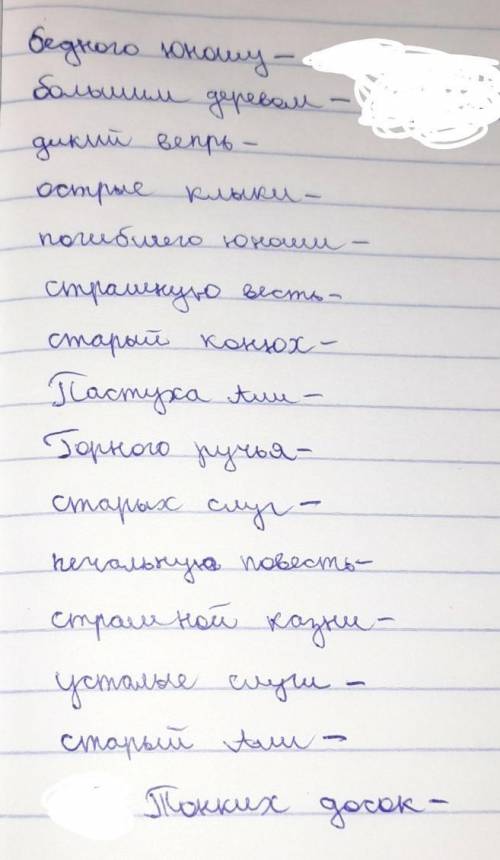 бедного юношу –
большим деревом –
дикий вепрь –
острые клыки –
погибшего юноши –
страшную весть –
старый конюх –
Пастуха Али –
Горного ручья –
старых слуг –
печальную повесть –
страшной казни –
усталые слуги –
старый Али –
Тонких досок –